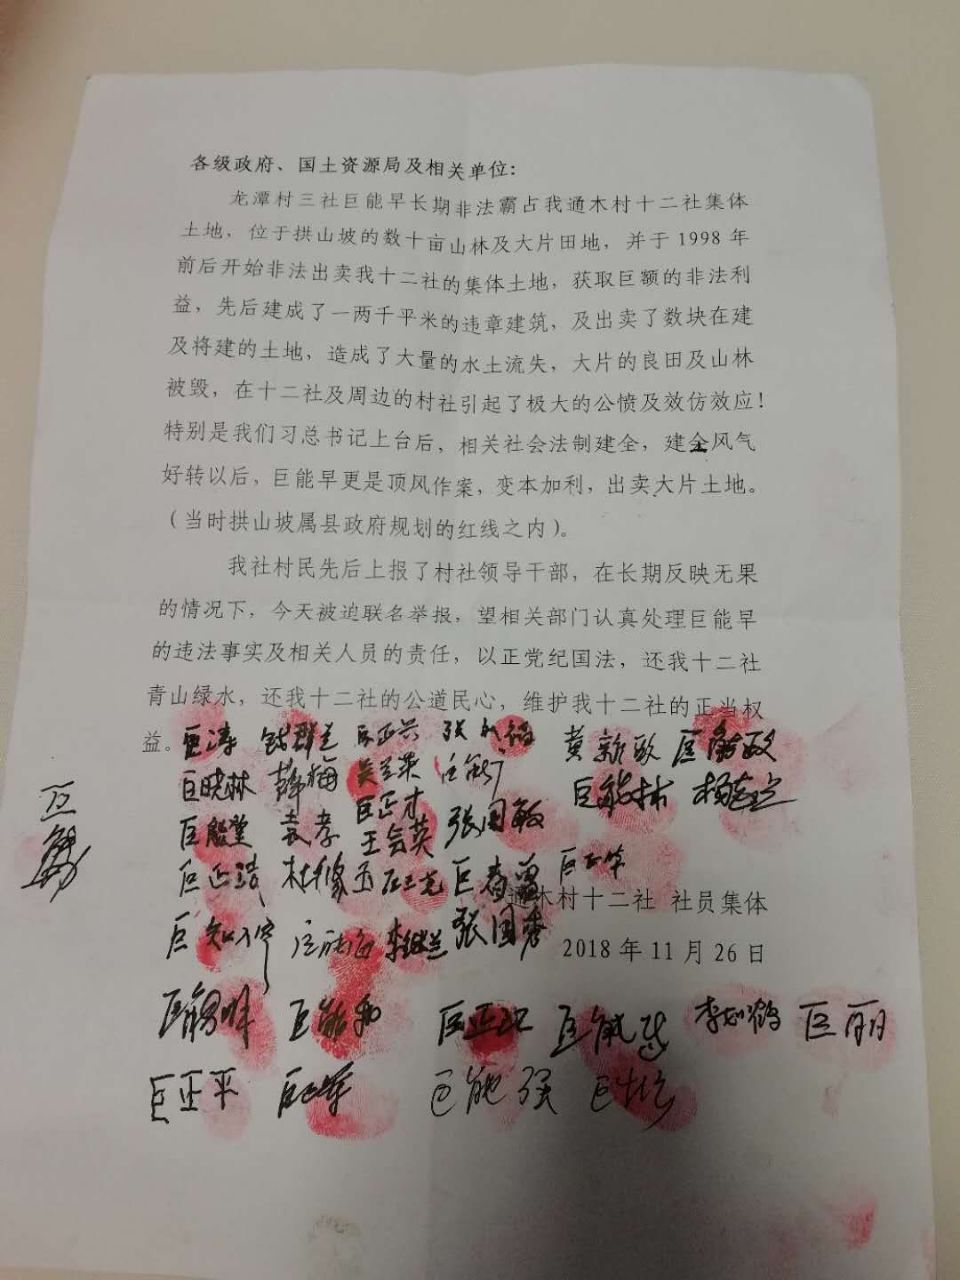 各级政府、国土资源局及相关单位：
龙潭村三社巨能早长期非法霸占我通木村十二社集体
土地，位于拱山坡的数十亩山林及大片田地，并于1998年
前后开始非法出卖我十二社的集体土地，获取巨额的非法利
益，先后建成了一两千平米的违章建筑，及出卖了数块在建
及将建的土地，造成了大量的水土流失，大片的良田及山林
被毁，在十二社及周边的村社引起了极大的公愤及效仿效应！
特别是我们习总书记上台后，相关社会法制建全，建全风气
好转以后，巨能早更是顶风作案，变本加利，出卖大片土地。
（当时拱山坡属县政府规划的红线之内）。
我社村民先后上报了村社领导干部，在长期反映无果
的情况下，今天被迫联名举报，望相关部门认真处理巨能早
的违法事实及相关人员的责任，以正党纪国法，还我十二社
青山绿水，还我十二社的公道民心，维护我十二社的正当权
益。
巨涛 巨正兴
巨晓林 薛梅 吴兰英 巨能林
巨能堂 袁孝 巨正才 王会英 张国敏
通木村十二社 社员集体
张国秀
2018年11月26日
巨能明 巨能和 巨正江 巨丽
巨正平 巨正军 巨能强